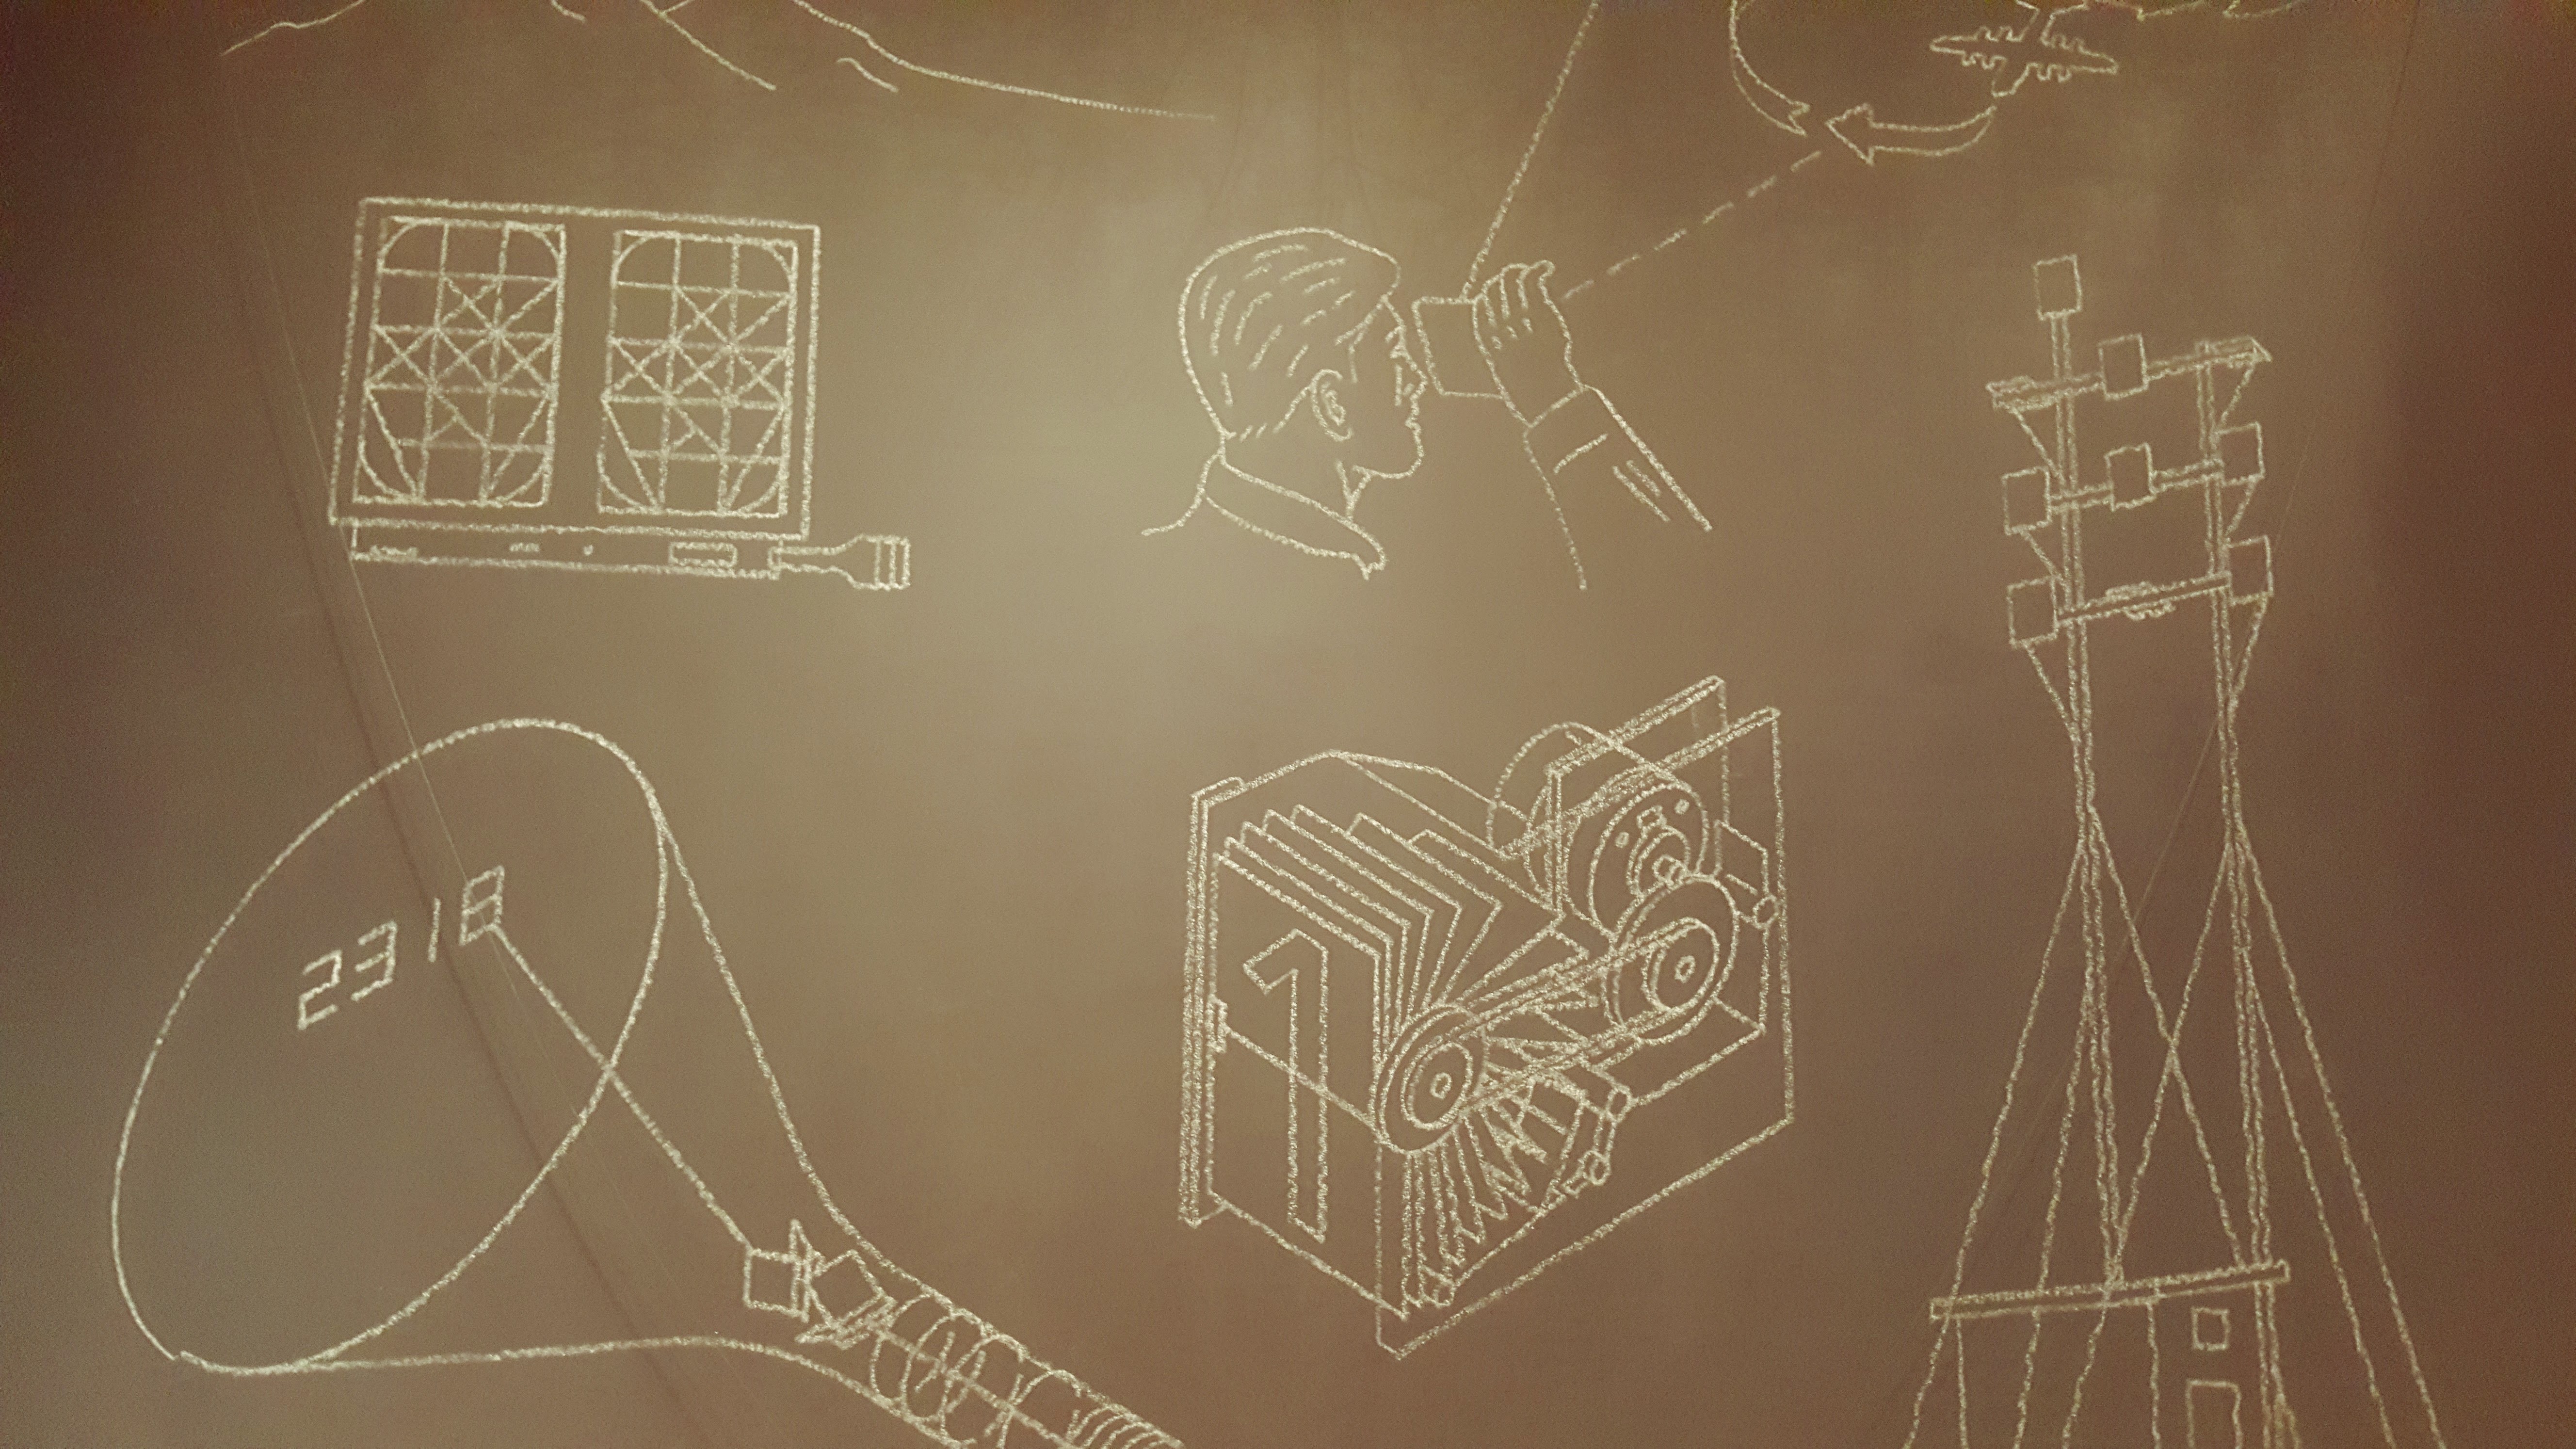 2318
1